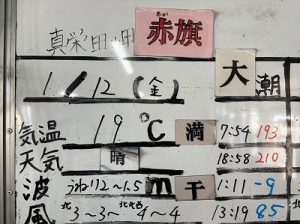 真栄田岬 赤旗
1/12(金) 大潮
気温 19℃ 満 7:54 193
天気 晴 18:58 210
波 うねり2~1.5m 干 1:11 -9
風 北3~3~北北西4~4 13:19 85